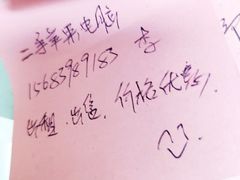 二手苹果电脑
15683989183 李
出租.出售,价格优惠!